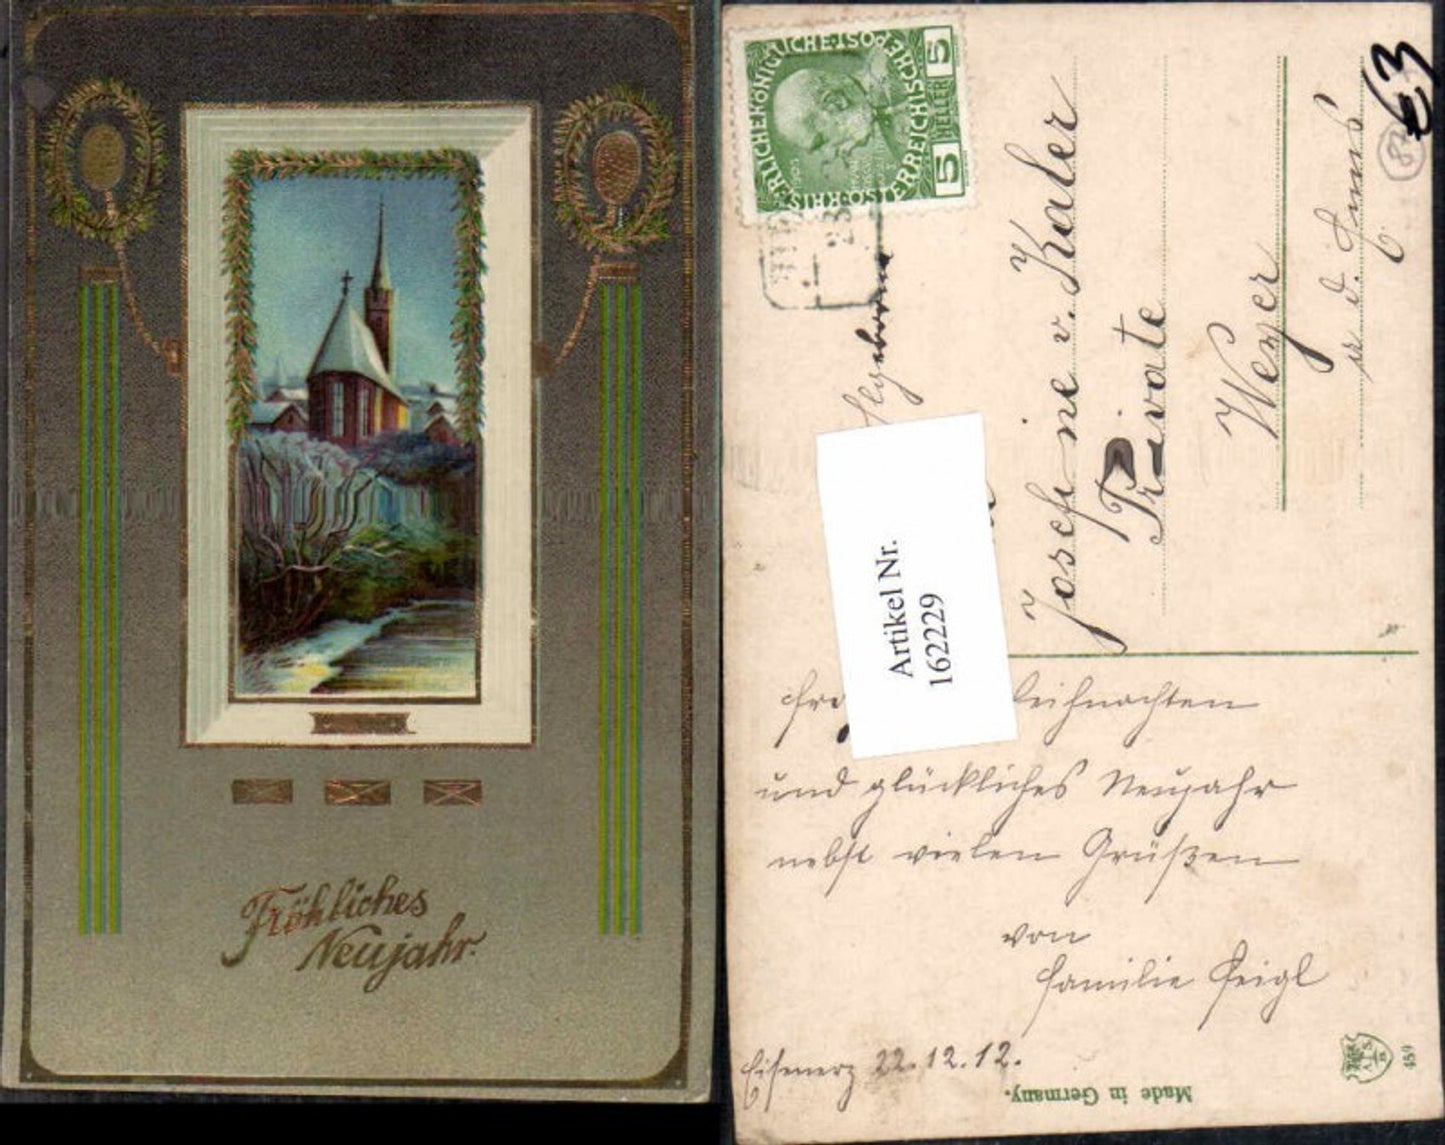 Fröhliches
Neujahr.
KAISERLICHE KÖNIGLICHE ÖSTERREICHISCHE POST
5 HELLER 5
Josefine v. Kaler
Private
Weyer
a. d. Enns
€3
Artikel Nr.
162229
Weihnachten
und glückliches Neujahr
nebst vielen Grüßen
von
Familie Feigl
Eisenerz 22.12.12.
Made in Germany.
459